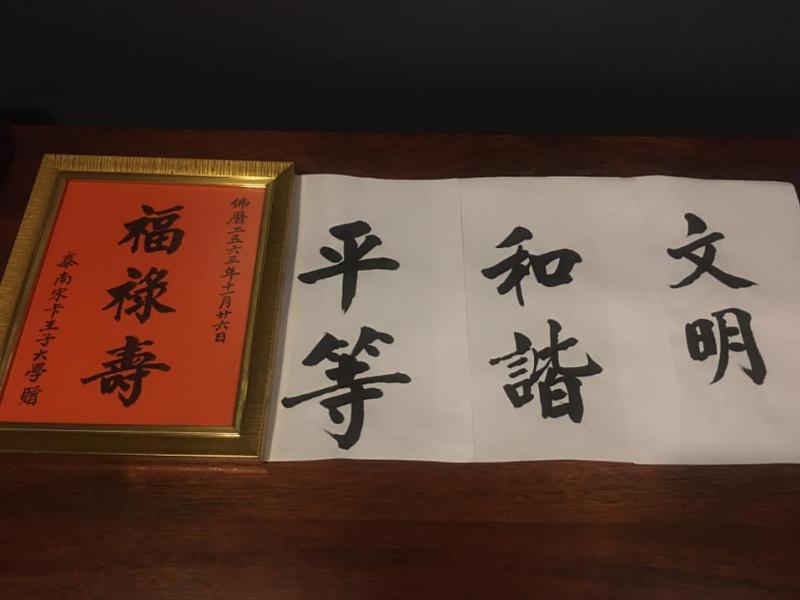 佛曆二五六三年十一月廿六日
福祿壽
泰南宋卡王子大學贈
文明
和諧
平等